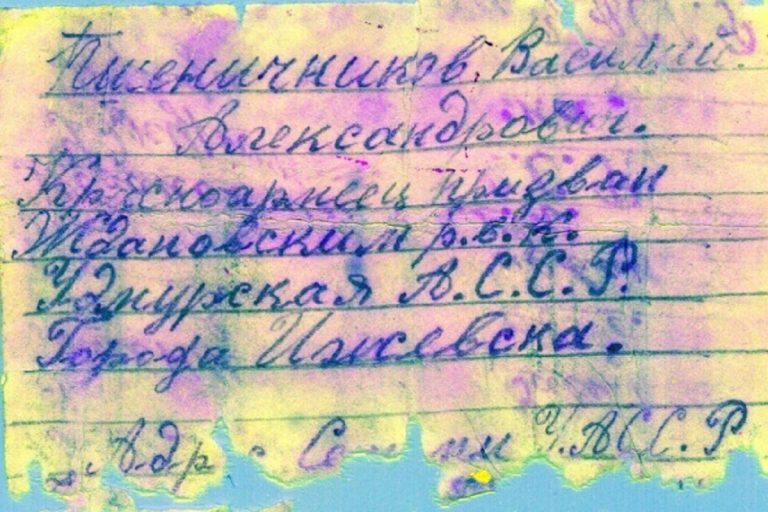 Пшеничников Василий.
Александрович.
Красноармеец придван
Ждановским р.в.к.
Удмурская А.С.С.Р.
Города Ижевска.
У.АССР